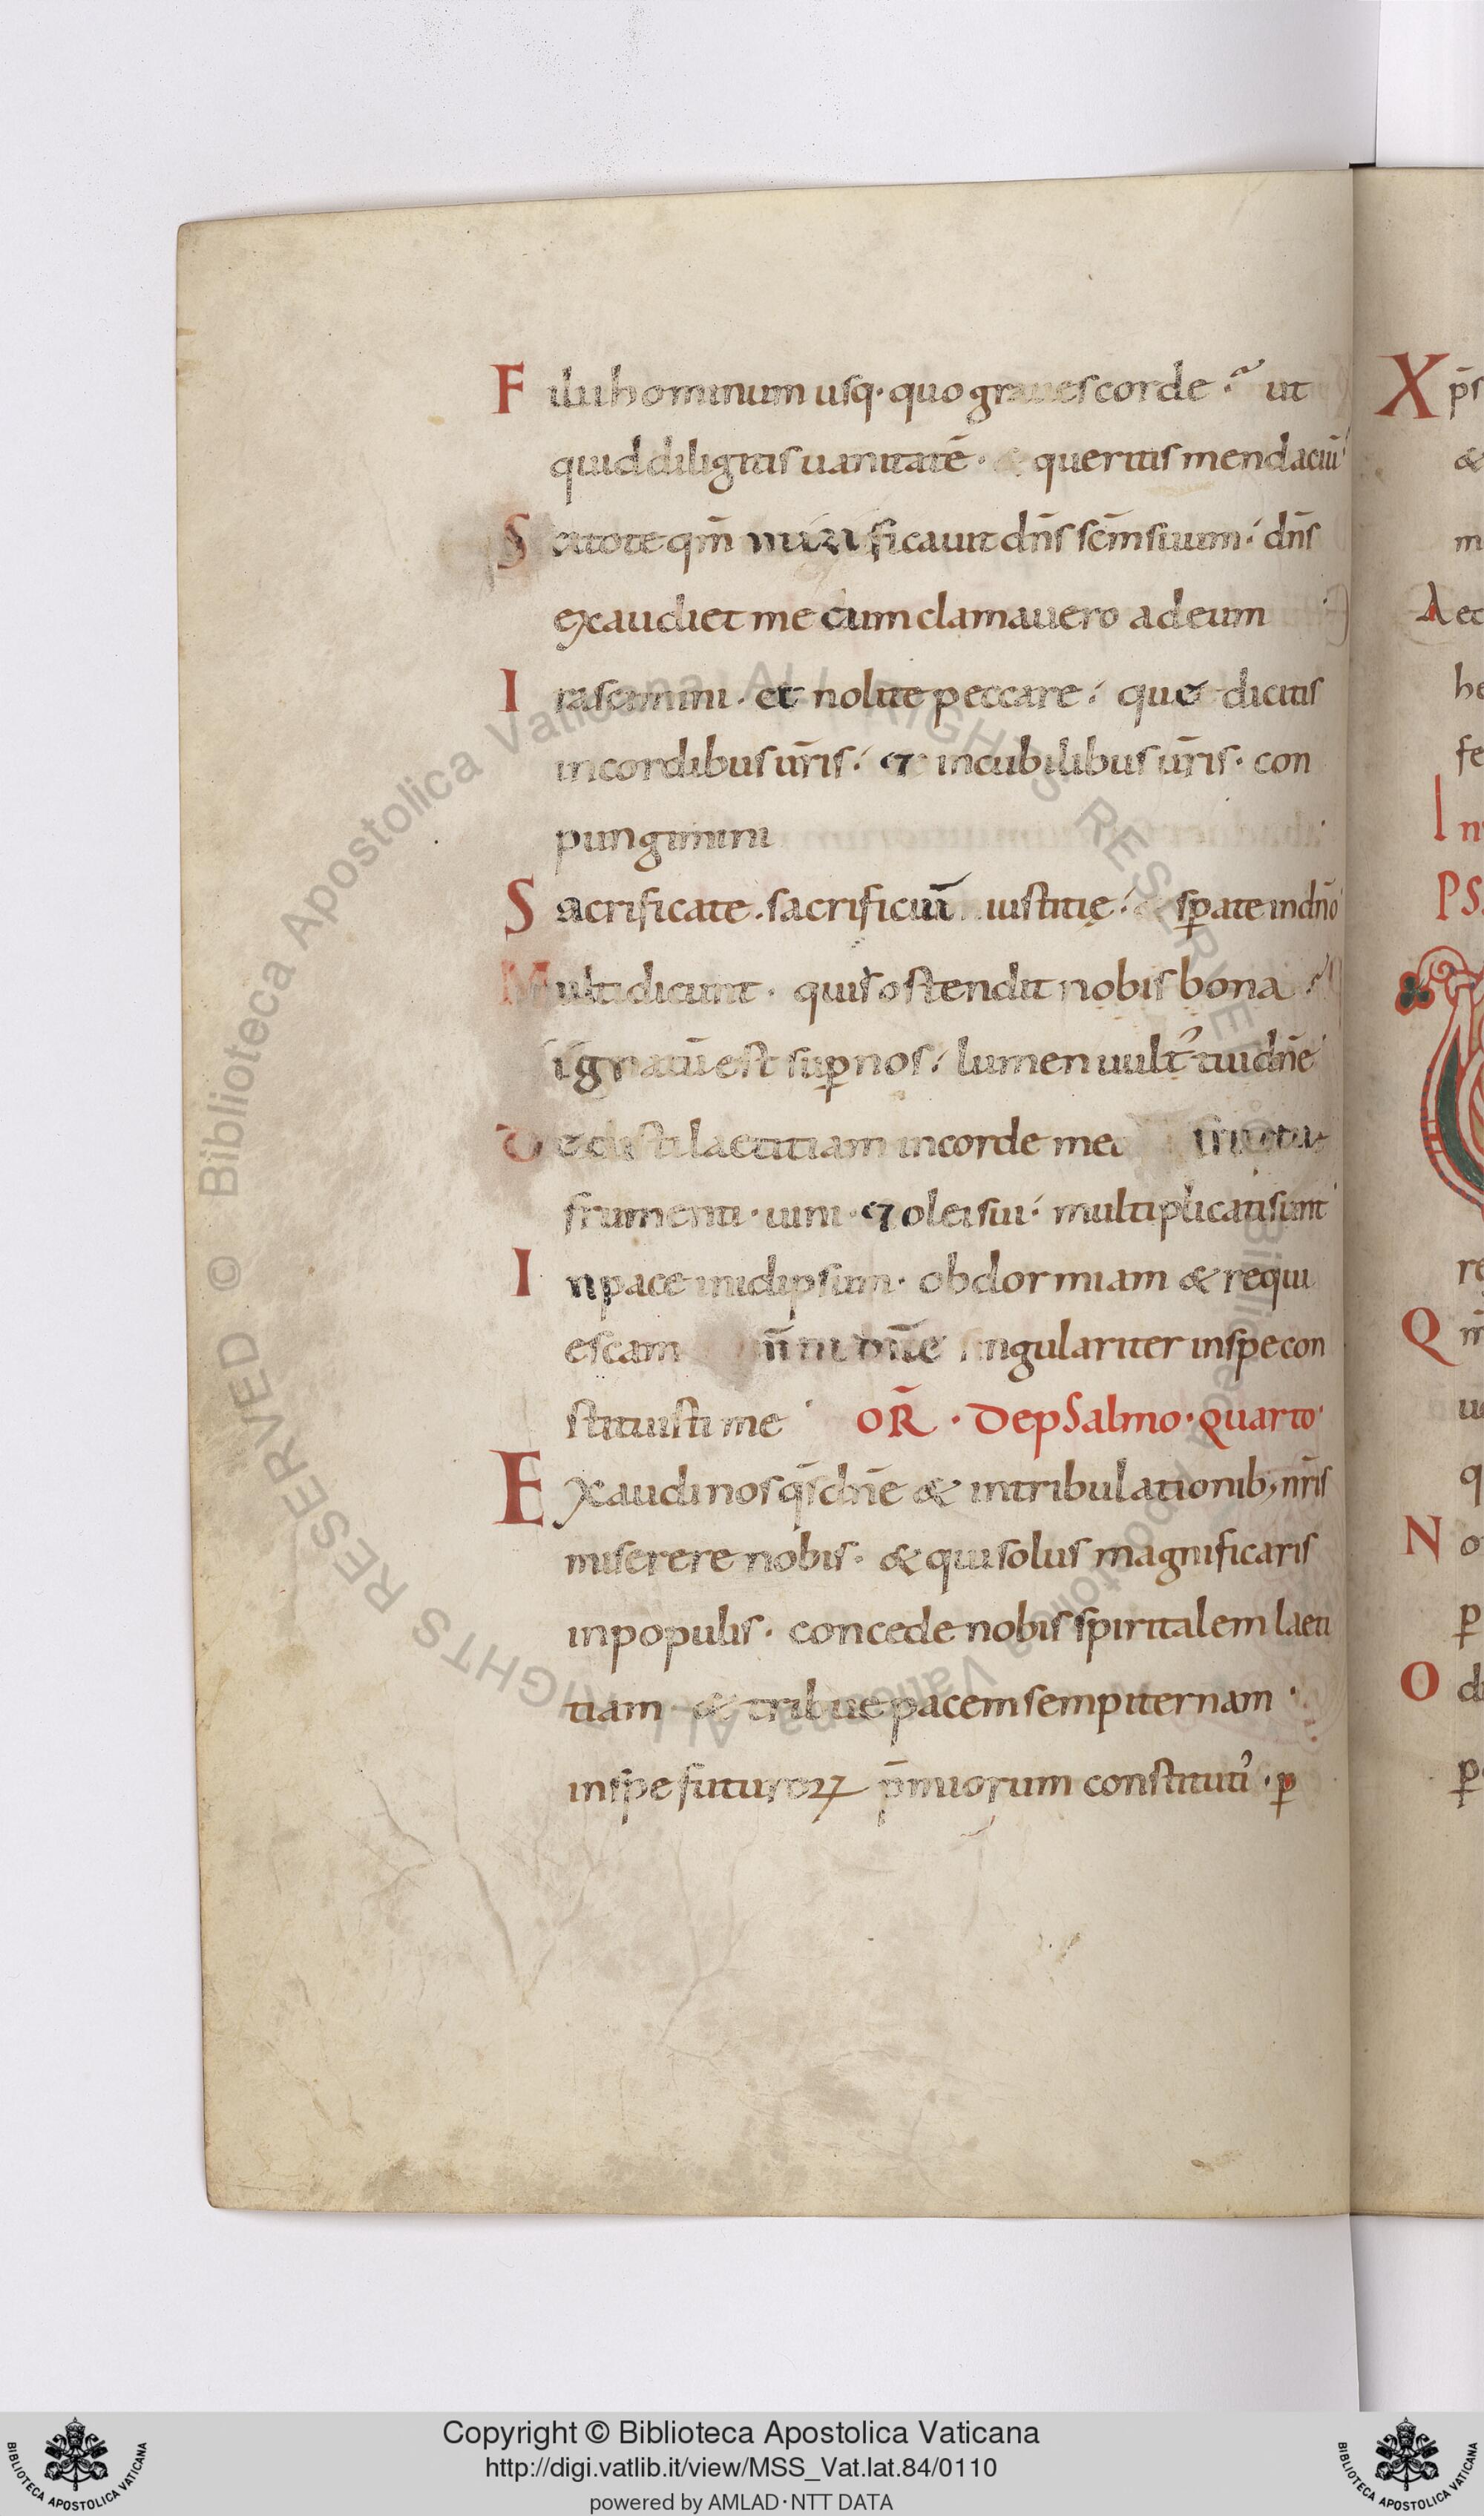 Filii hominum usq· quo graues corde ·̃ ut
quid diligitis uanitatē · & queritis mendaciū
Scitote qm̄ mirificauit dn̄s sc̄m suum ; dn̄s
exaudiet me cum clamauero ad eum
Irascimini · et nolite peccare ; que dicitis
in cordibus ur̄is ; & in cubilibus ur̄is · con
pungimini
Sacrificate · sacrificiū iustitię ; & sꝑate in dn̄o
Multi dicunt · quis ostendit nobis bona ·̃
signatū est suꝑ nos ; lumen uult᾿ tui dn̄e
Dedisti laetitiam in corde meo
frumenti · uini · & olei sui ; multiplicati sunt
In pace in idipsum · obdormiam & requi
escam dn̄e singulariter in spe con
stituisti me OR̄ · De pSalmo · quarto
Exaudi nos qs̄ dn̄e & in tribulationib; nr̄is
miserere nobis · & qui solus magnificaris
in populis · concede nobis spiritalem laeti
tiam · & tribue pacem sempiternam ·
in spe futuroꝝ p̄miorum constituti᾿ · ꝑ
Xp̄s
&
m
Aet
he
fe
In
PS
re
Q m̄
ue
q
N o
p
O di
ꝑ
© Biblioteca Apostolica Vaticana ALL RIGHTS RESERVED
© Biblioteca Apostolica Vaticana ALL RIGHTS RESERVED
Copyright © Biblioteca Apostolica Vaticana
http://digi.vatlib.it/view/MSS_Vat.lat.84/0110
powered by AMLAD·NTT DATA
BIBLIOTECA APOSTOLICA VATICANA
BIBLIOTECA APOSTOLICA VATICANA